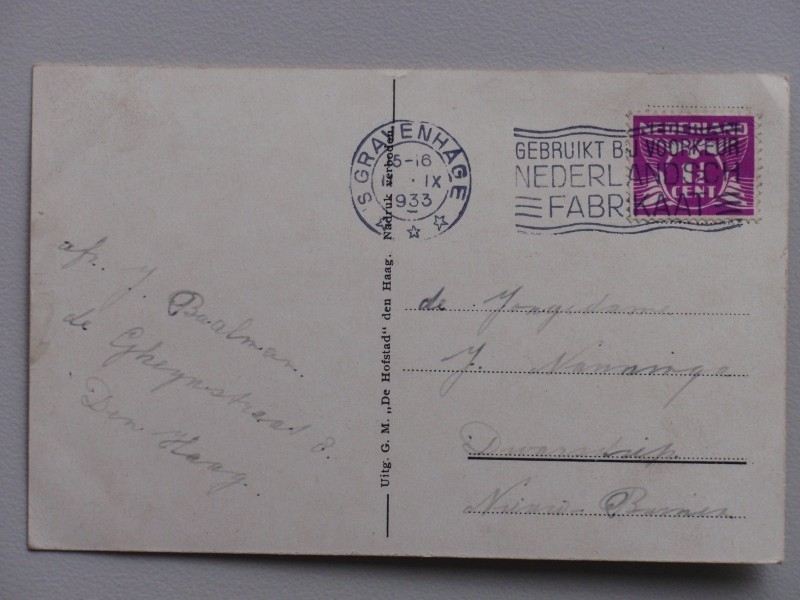 'S GRAVENHAGE
5-16
IX
1933
GEBRUIKT BIJ VOORKEUR
NEDERLANDSCH
FABRIKAAT
NEDERLAND
1½
CENT
afz. J. Baalman.
de Gheynstraat 8.
Den Haag.
Uitg. G. M. „De Hofstad" den Haag. Nadruk verboden.
de Jongedame
J. Nanninga
Nieuwe